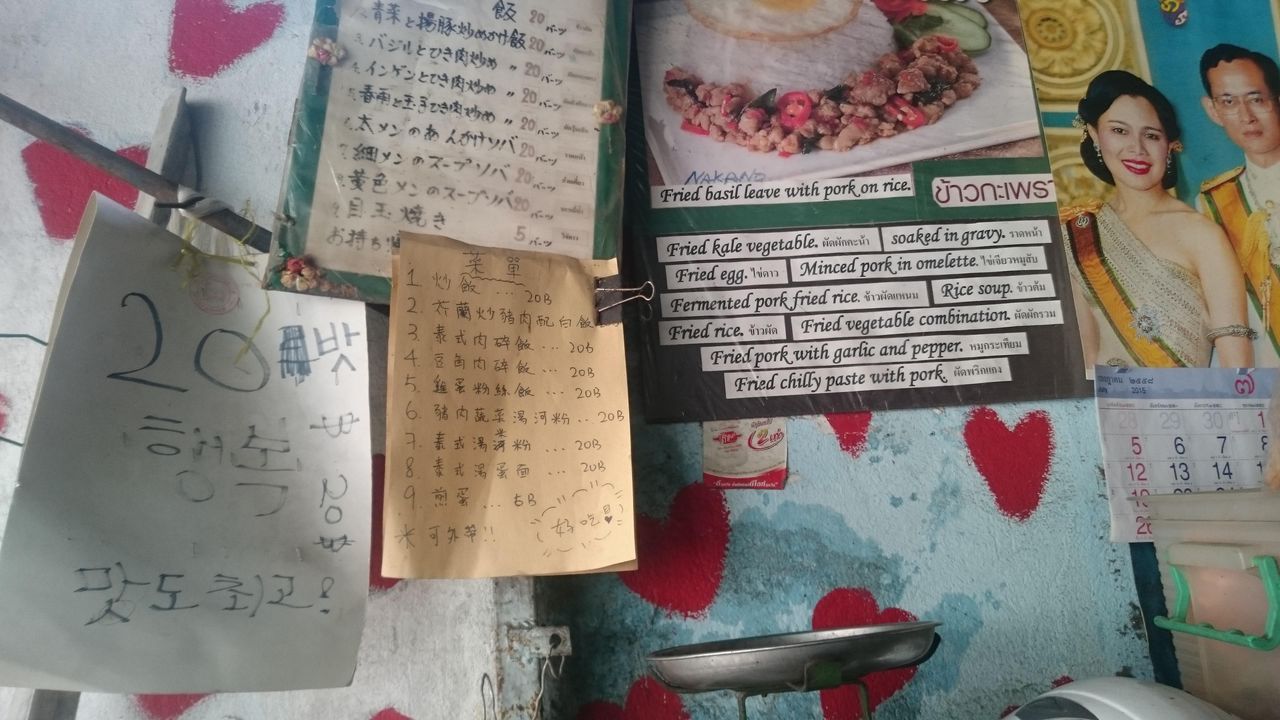 飯 20
青菜と揚豚炒めかけ飯 20 バーツ
バジルとひき肉炒め 〃 20 バーツ
インゲンとひき肉炒め 〃 20 バーツ
春雨と玉子ひき肉炒め 〃 20 バーツ
太メンのあんかけソバ 20 バーツ
7. 細メンのスープソバ 20 バーツ
8. 黄色メンのスープソバ 20 バーツ
9. 目玉焼き 5 バーツ
お持ち
菜單
1. 炒飯 ... 20B
2. 芥蘭炒豬肉配白飯
3. 泰式肉碎飯 ... 20B
4. 豆角肉碎飯 ... 20B
5. 雞蛋粉絲飯 ... 20B
6. 豬肉蔬菜湯河粉 ... 20B
7. 泰式湯米粉 ... 20B
8. 泰式湯蛋面 ... 20B
9. 煎蛋 ... 5B
* 可外帶!!
好吃!
20밧
행복
맛도 최고!
NAKANO
Fried basil leave with pork on rice.
ข้าวกะเพรา
Fried kale vegetable. ผัดผักคะน้า
soaked in gravy. ราดหน้า
Fried egg. ไข่ดาว
Minced pork in omelette. ไข่เจียวหมูสับ
Fermented pork fried rice. ข้าวผัดแหนม
Rice soup. ข้าวต้ม
Fried rice. ข้าวผัด
Fried vegetable combination. ผัดผักรวม
Fried pork with garlic and pepper. หมูกระเทียม
Fried chilly paste with pork. ผัดพริกแกง
๒๕๕๘
2015
๗
28 29 30 1
5 6 7 8
12 13 14 15
19